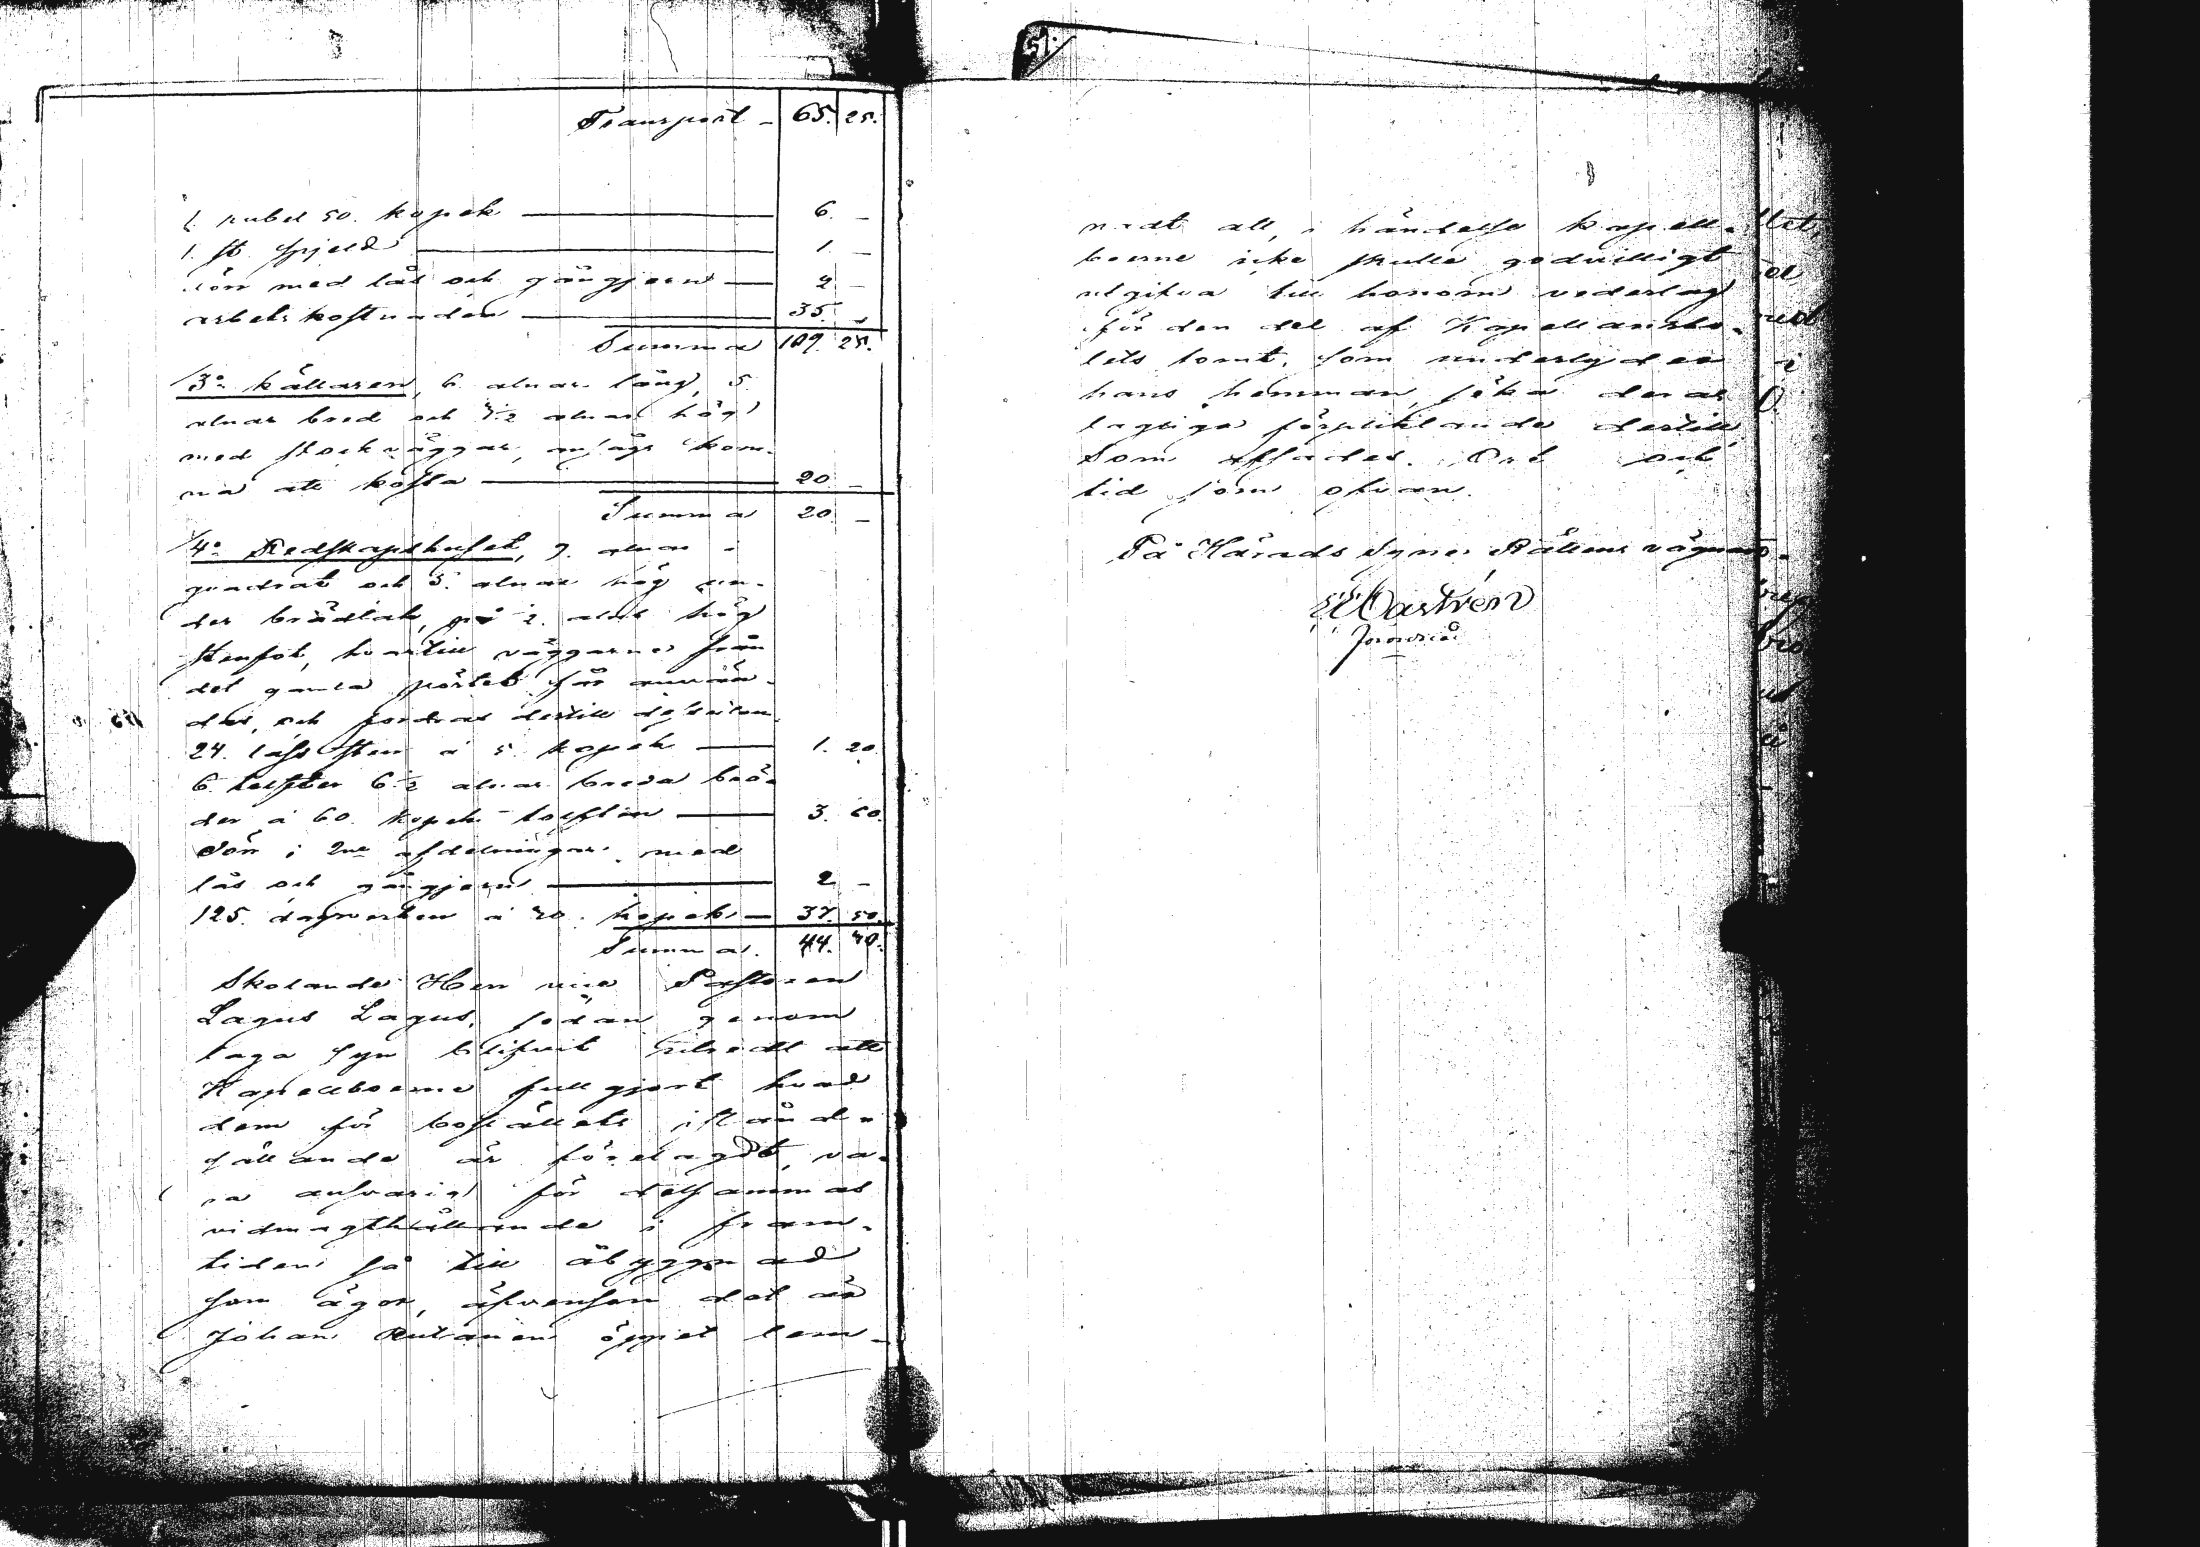 Transport - 65. 25.
1. rubel 50. kopek — 6. -
1. st spjeld — 1. -
dörr med lås och gångjern — 2 -
arbetskostnaden — 35. -
Summa 109. 25.
3o källaren, 6. alnar lång, 5
alnar bred och 3½ alnar hög
med stockväggar, ansågs kom-
ma att kosta — 20. -
Summa 20 -
4o Redskapshuset, 9. alnar i
quadrat och 5. alnar hög un-
der brädtak, på ½. aln hög
stenfot, hvartill väggarne från
det gamla pörtet får använ-
das, och fordras dertill dessutom
24. lass sten à 5 kopek — 1. 20.
6 tolfter 6½ alnar breda brä-
der à 60. kopek tolften — 3. 60.
Dörr i 2ne afdelningar med
lås och gångjern — 2 -
125. dagsverken à 30. kopek — 37. 50.
Summa. 44. 30.
Skolande Herr vice Pastoren
Lagus Lagus, sedan genom
laga syn blifvit utredt att
Kapellboerne fullgjort hvad
dem för boställets iståndsättande
är förelagdt, va-
ra ansvarig för detsammas
vidmagthållande i fram-
tiden så till åbyggnad
som ägor, äfvensom det är
Johan Rutanen öppet lem-
51.
nadt att, i händelse kapell-
boerne icke skulle godvilligt
utgifva till honom vederlag
för den del af Kapellansbo-
lets tomt, som underlyder
hans hemman, söka deras
lagliga förpliktande dertill,
Som afsades. Ort och
tid som ofvan.
På Härads Syne Rättens vägnar
Castrén